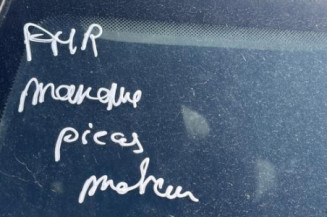 AHR
manque
picas
moteur